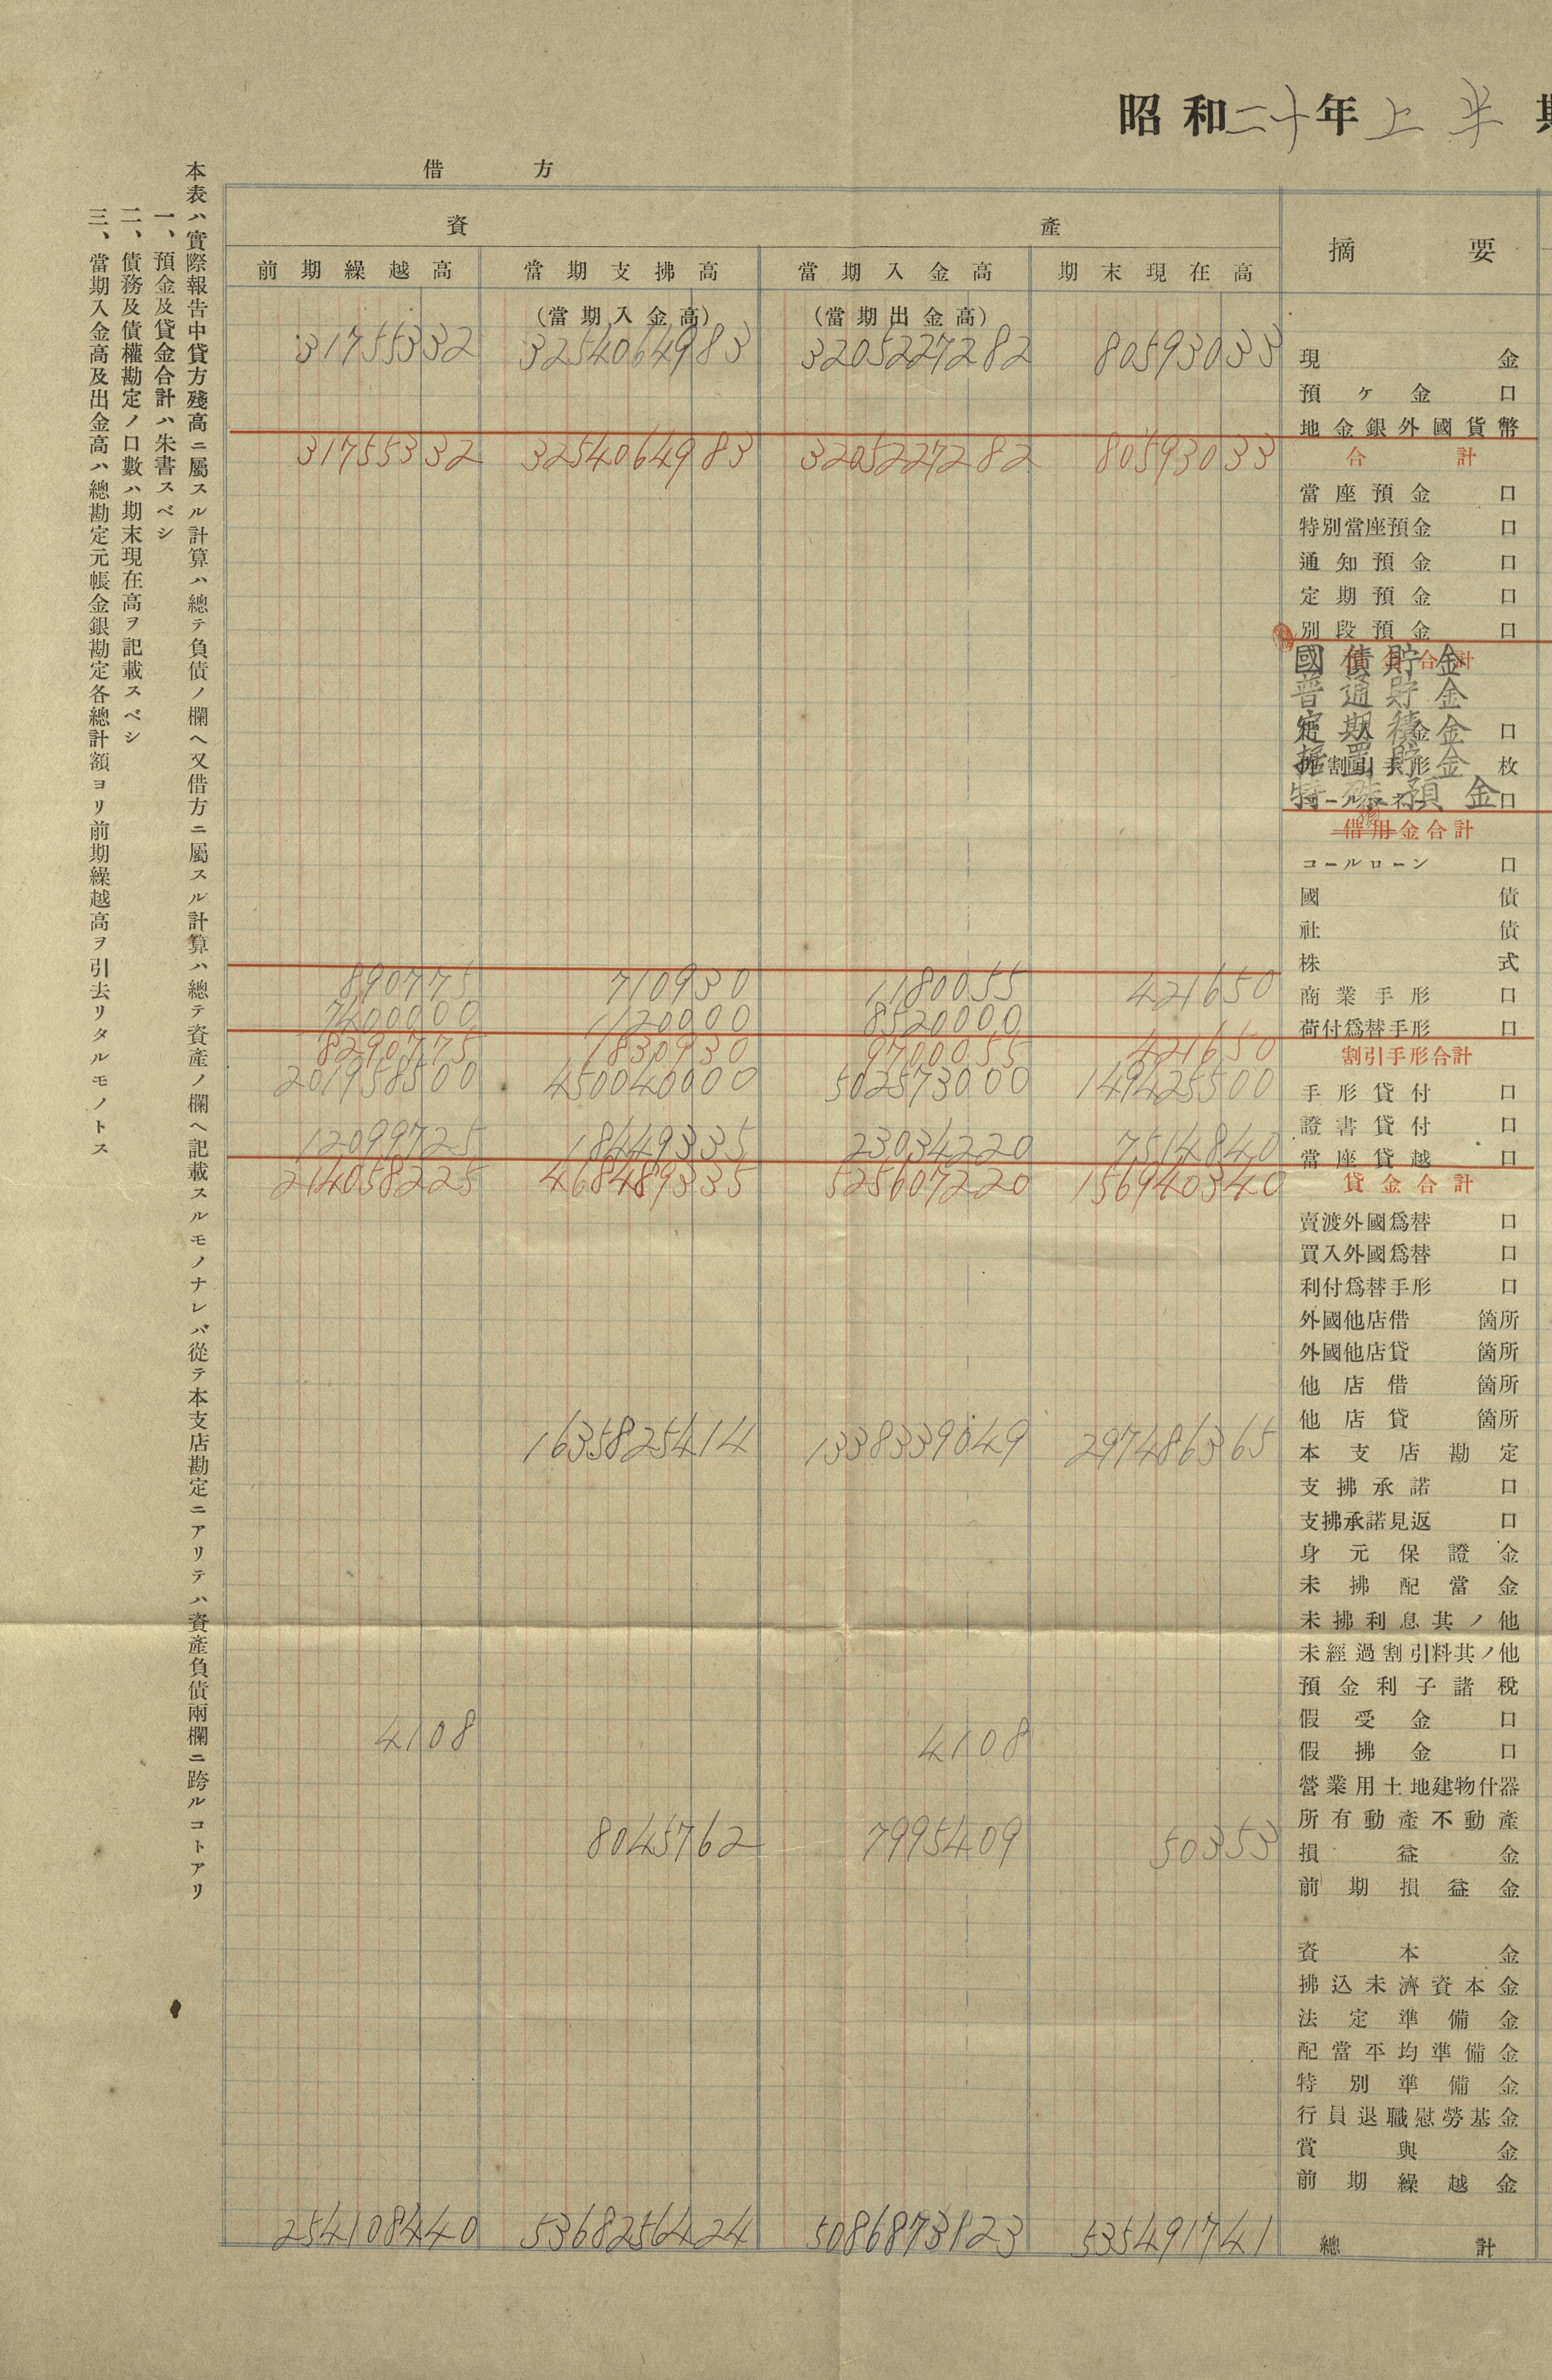 昭和二十年上半期
借方
資産
前期繰越高 當期支拂高 當期入金高 期末現在高 摘要
(當期入金高) (當期出金高)
31755332 3254064983 3205227282 80593033 現金
預ヶ金 口
地金銀外國貨幣
31755332 3254064983 3205227282 80593033 合計
當座預金 口
特別當座預金 口
通知預金 口
定期預金 口
別段預金 口
國債貯金
合計
普通貯金
定期積金 口
据置貯金
割引手形 枚
特殊預金 口
借用金合計
コールローン 口
國債
社債
株式
890775 710930 1180055 421650 商業手形 口
7400000 1120000 8520000 荷付爲替手形 口
8290775 1830930 9700055 421650 割引手形合計
201958500 450040000 502573000 149425500 手形貸付 口
證書貸付 口
12099725 18449335 23034220 7514840 當座貸越 口
214058225 468489335 525607220 156940340 貸金合計
賣渡外國爲替 口
買入外國爲替 口
利付爲替手形 口
外國他店借 箇所
外國他店貸 箇所
他店借 箇所
他店貸 箇所
1635825414 1338339049 297486365 本支店勘定
支拂承諾 口
支拂承諾見返 口
身元保證金
未拂配當金
未拂利息其ノ他
未經過割引料其ノ他
預金利子諸稅
假受金 口
4108 4108 假拂金 口
營業用土地建物什器
所有動產不動產
8045762 7995409 50353 損益金
前期損益金
資本金
拂込未濟資本金
法定準備金
配當平均準備金
特別準備金
行員退職慰勞基金
賞與金
前期繰越金
254108440 5368256424 5086873123 535491741 總計
本表ハ實際報吿中貸方殘高ニ屬スル計算ハ總テ負債ノ欄ヘ又借方ニ屬スル計算ハ總テ資産ノ欄ヘ記載スルモノナレバ從テ本支店勘定ニアリテハ資產負債兩欄ニ跨ルコトアリ
一、預金及貸金合計ハ朱書スベシ
二、債務及債權勘定ノ口數ハ期末現在高ヲ記載スベシ
三、當期入金高及出金高ハ總勘定元帳金銀勘定各總計額ヨリ前期繰越高ヲ引去リタルモノトス